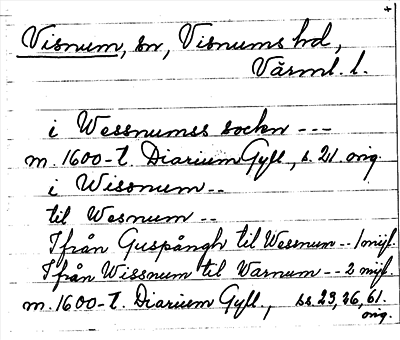 Visnum, sn, Visnums hd,
Värml. l.
i Wessnumss sockn ---
m. 1600-t. Diarium Gyll, s. 21 orig.
i Wissnum --
til Wesnum --
Ifrån Guspångh til Wesnum -- 1 mijl.
Ifrån Wissnum til Warnum -- 2 mijl.
m. 1600-t. Diarium Gyll, ss. 23, 26, 61.
orig.